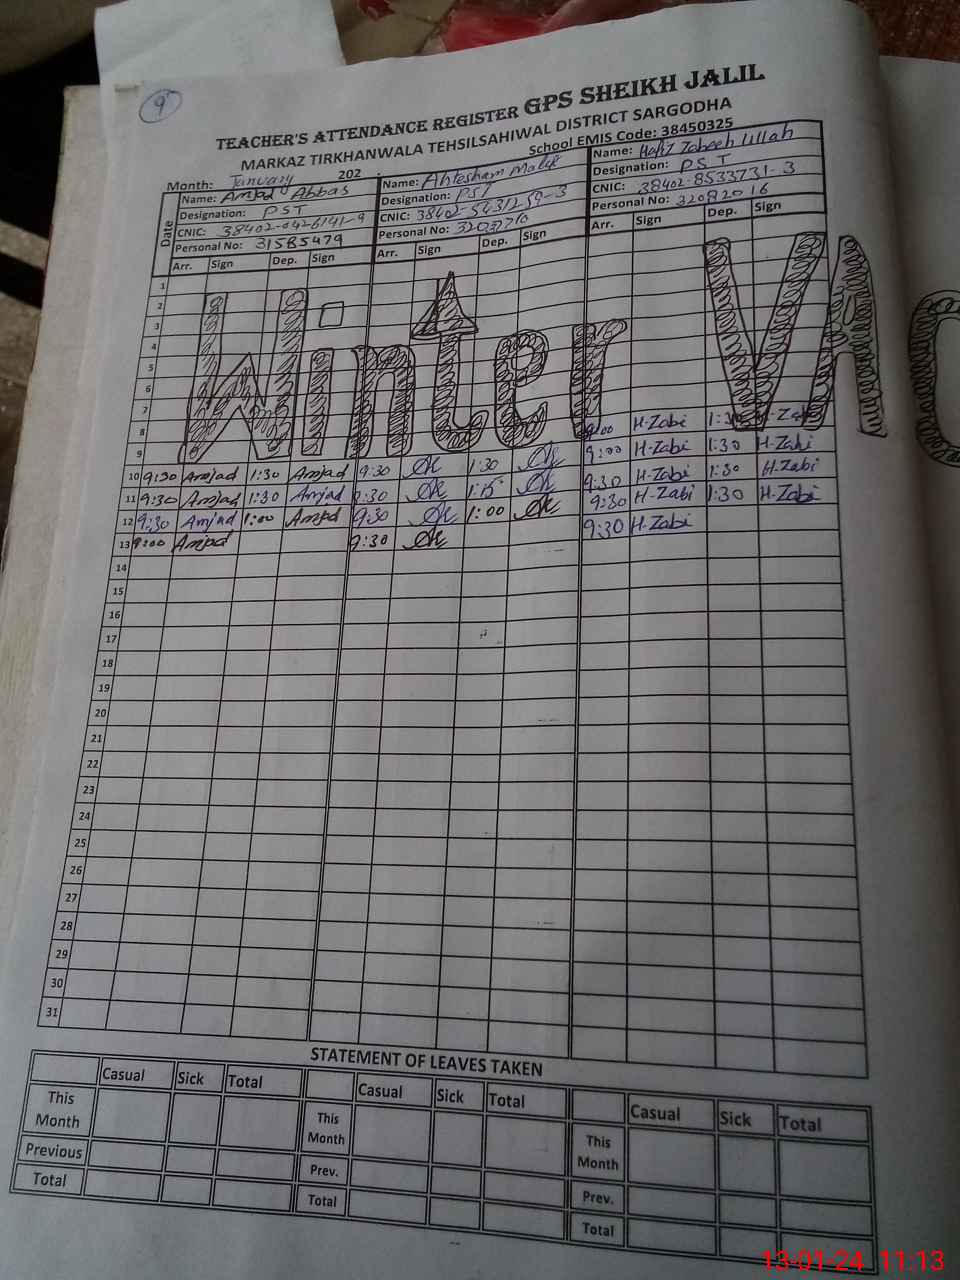 9
TEACHER'S ATTENDANCE REGISTER GPS SHEIKH JALIL
MARKAZ TIRKHANWALA TEHSILSAHIWAL DISTRICT SARGODHA
School EMIS Code: 38450325
Month: January 202
Date
Name: Amjad Abbas
Designation: PST
CNIC: 38402-0426141-9
Personal No: 31585479
Arr. Sign Dep. Sign
Name: Ahtesham Malik
Designation: PST
CNIC: 38402-5431259-3
Personal No: 32037710
Arr. Sign Dep. Sign
Name: Hafiz Zabeeh Ullah
Designation: PST
CNIC: 38402-8533731-3
Personal No: 32082016
Arr. Sign Dep. Sign
Winter Va
1
2
3
4
5
6
7
8 9:00 H-Zabi 1:30 H-Zabi
9 9:00 H-Zabi 1:30 H-Zabi
10 9:30 Amjad 1:30 Amjad 9:30 1:30 9:30 H-Zabi 1:30 H-Zabi
11 9:30 Amjad 1:30 Amjad 9:30 1:15 9:30 H-Zabi 1:30 H-Zabi
12 9:30 Amjad 1:00 Amjad 9:30 1:00 9:30 H-Zabi
13 9:00 Amjad 9:30
14
15
16
17
18
19
20
21
22
23
24
25
26
27
28
29
30
31
STATEMENT OF LEAVES TAKEN
Casual Sick Total Casual Sick Total Casual Sick Total
This Month This Month This Month
Previous Prev. Prev.
Total Total Total
13-01-24 11:13